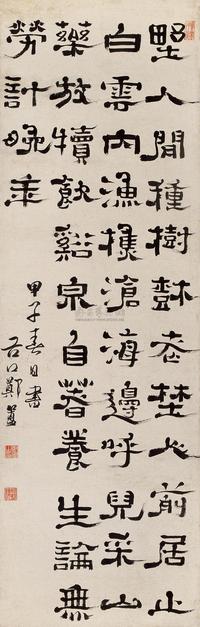 野人閒種樹樹老埜人前居止
白雲內漁樵滄海邊呼兒采山
藥放犢飲谿泉自著養生論無
勞計晚秊
甲子春日書
谷口鄭簠